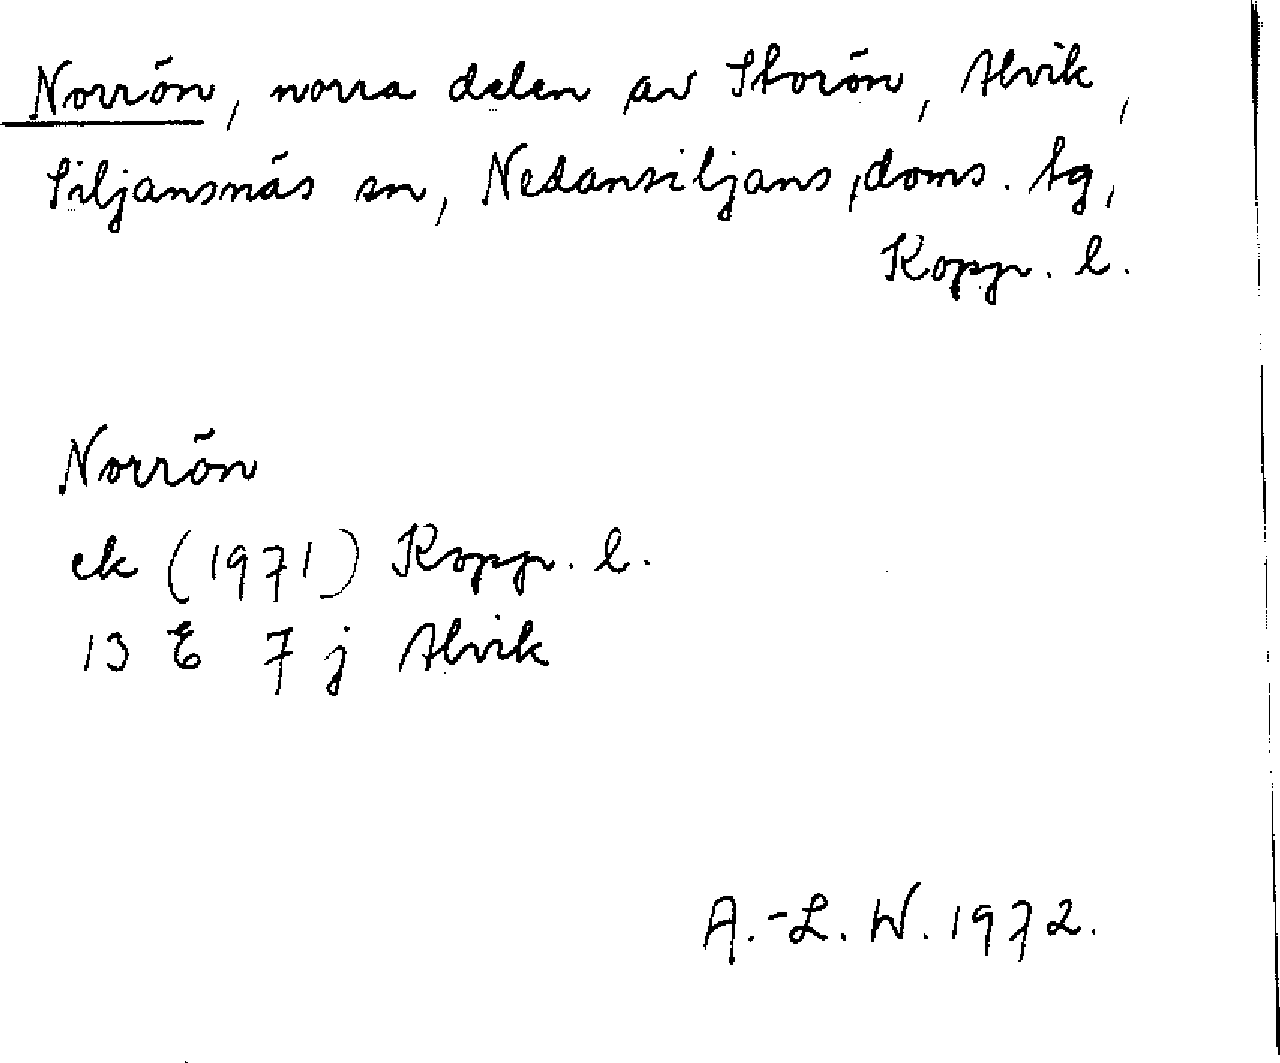 Norrön, norra delen av Storön, Alvik,
Siljansnäs sn, Nedansiljans, doms. tg,
Kopp. l.
Norrön
ek (1971) Kopp. l.
13 E 7 j Alvik
A.-L. W. 1972.